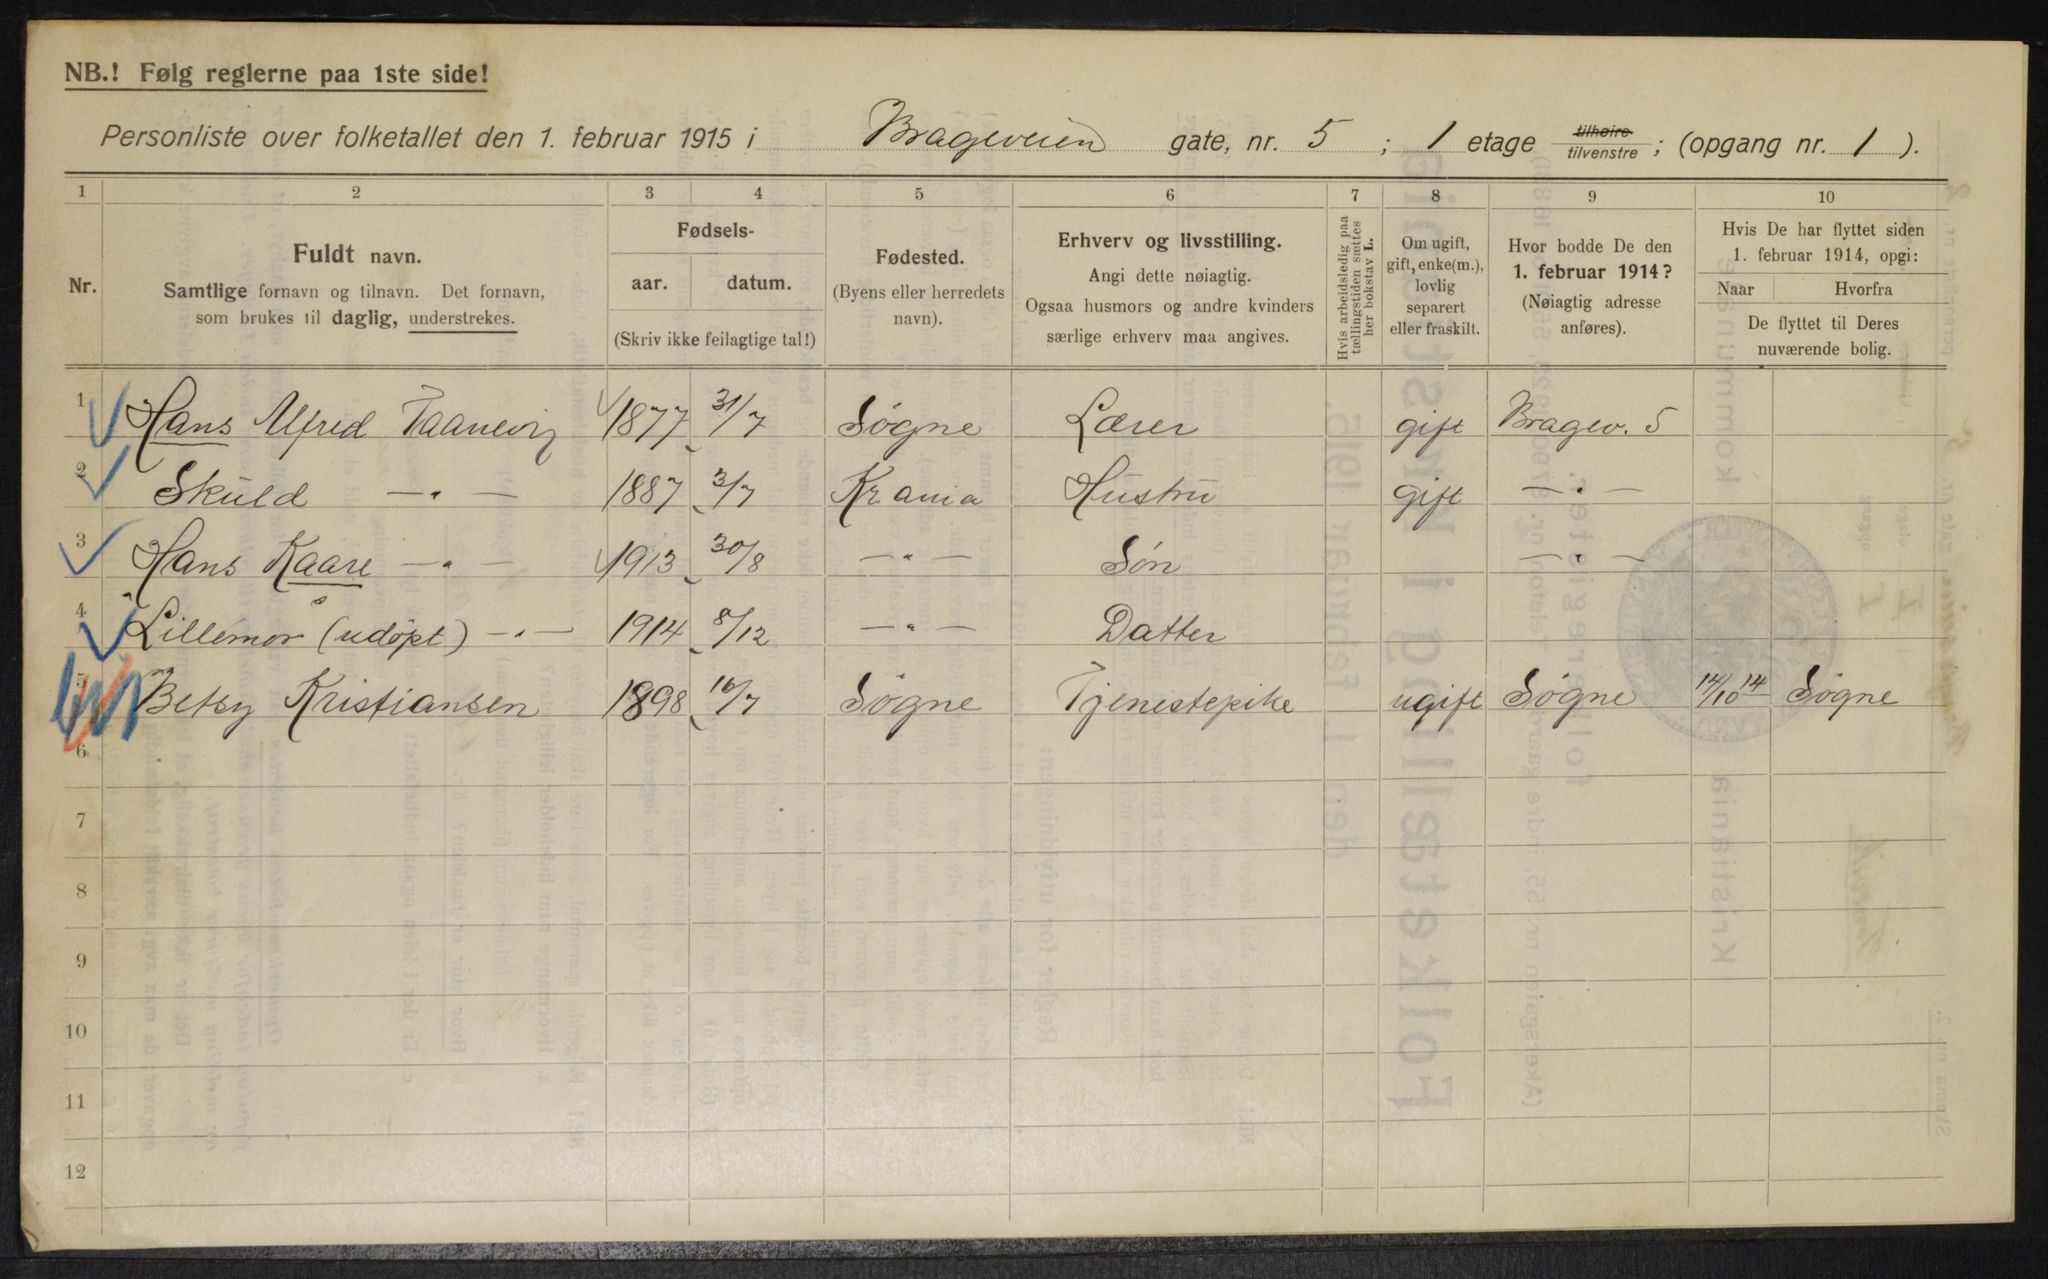 NB.! Følg reglerne paa 1ste side!
Personliste over folketallet den 1. februar 1915 i Brageveien gate, nr. 5 ; 1 etage tilhøire tilvenstre ; (opgang nr. 1 ).
1 2 3 4 5 6 7 8 9 10
Nr.
Fuldt navn.
Samtlige fornavn og tilnavn. Det fornavn,
som brukes til daglig, understrekes.
Fødsels-
aar. datum.
(Skriv ikke feilagtige tal!)
Fødested.
(Byens eller herredets
navn).
Erhverv og livsstilling.
Angi dette nøiagtig.
Ogsaa husmors og andre kvinders
særlige erhverv maa angives.
Hvis arbeidsledig paa
tællingstiden sættes
her bokstav L.
Om ugift,
gift, enke(m.),
lovlig
separert
eller fraskilt.
Hvor bodde De den
1. februar 1914?
(Nøiagtig adresse
anføres).
Hvis De har flyttet siden
1. februar 1914, opgi:
Naar Hvorfra
De flyttet til Deres
nuværende bolig.
1 Hans Alfred Taanevig 1877 31/7 Søgne Lærer gift Bragev. 5
2 Skuld —„— 1887 3/7 Krania Hustru gift —„—
3 Hans Kaare —„— 1913 30/8 —„— Søn —„—
4 Lillemor (udøpt) —„— 1914 8/12 —„— Datter
5 Betsy Kristiansen 1898 16/7 Søgne Tjenestepike ugift Søgne 14/10 14 Søgne
6
7
8
9
10
11
12